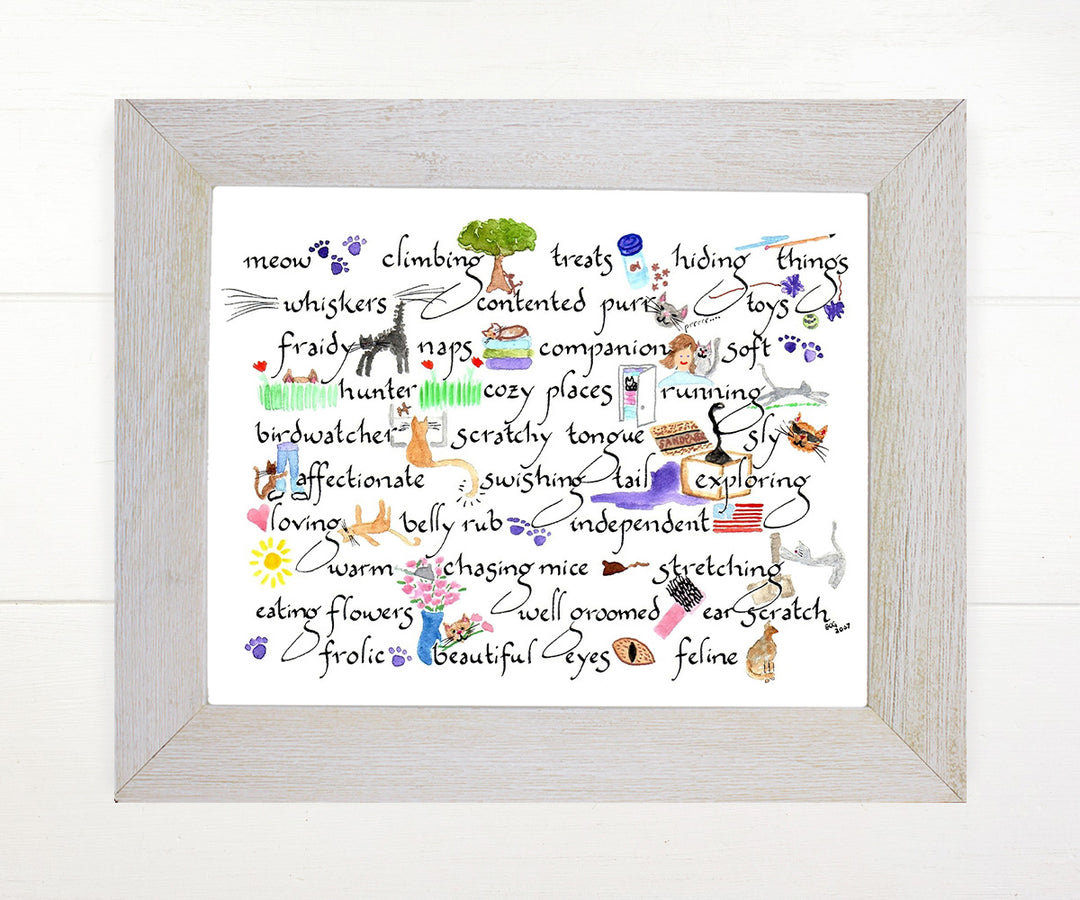 meow climbing treats hiding things
whiskers contented purr toys
prrrr....
fraidy naps companion soft
hunter cozy places running
birdwatcher scratchy tongue SANDPAPER sly
affectionate swishing tail exploring
loving belly rub independent
warm chasing mice stretching
eating flowers well groomed ear scratch
2007
frolic beautiful eyes feline